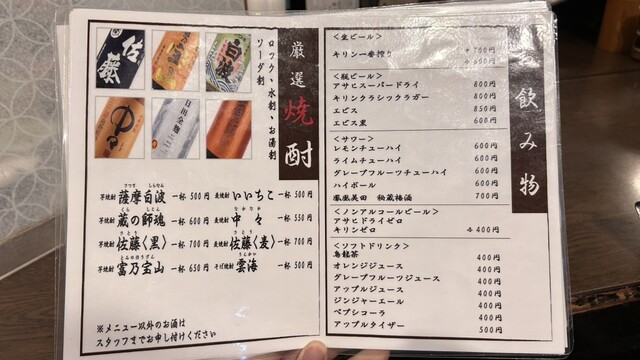 お飲み物
<生ビール>
キリン一番搾り
中 700円
小 600円
<瓶ビール>
アサヒスーパードライ 800円
キリンクラシックラガー 800円
エビス 850円
エビス黒 600円
<サワー>
レモンチューハイ 600円
ライムチューハイ 600円
グレープフルーツチューハイ 600円
ハイボール 600円
鳳凰美田 秘蔵梅酒 700円
<ノンアルコールビール>
アサヒドライゼロ
キリンゼロ 各400円
<ソフトドリンク>
烏龍茶 400円
オレンジジュース 400円
グレープフルーツジュース 400円
アップルジュース 400円
ジンジャーエール 400円
ペプシコーラ 400円
アップルタイザー 500円
厳選焼酎
ロック・水割・お湯割
ソーダ割
佐藤
白波
中々
芋焼酎 薩摩白波 一杯 500円
さつま しらなみ
麦焼酎 いいちこ 一杯 500円
芋焼酎 蔵の師魂 一杯 600円
くら しこん
麦焼酎 中々 一杯 550円
なかなか
芋焼酎 佐藤〈黒〉 一杯 700円
さとう
麦焼酎 佐藤〈麦〉 一杯 700円
さとう
芋焼酎 富乃宝山 一杯 650円
とみのほうざん
そば焼酎 雲海 一杯 500円
うんかい
※メニュー以外のお酒は
スタッフまでお申し付けください